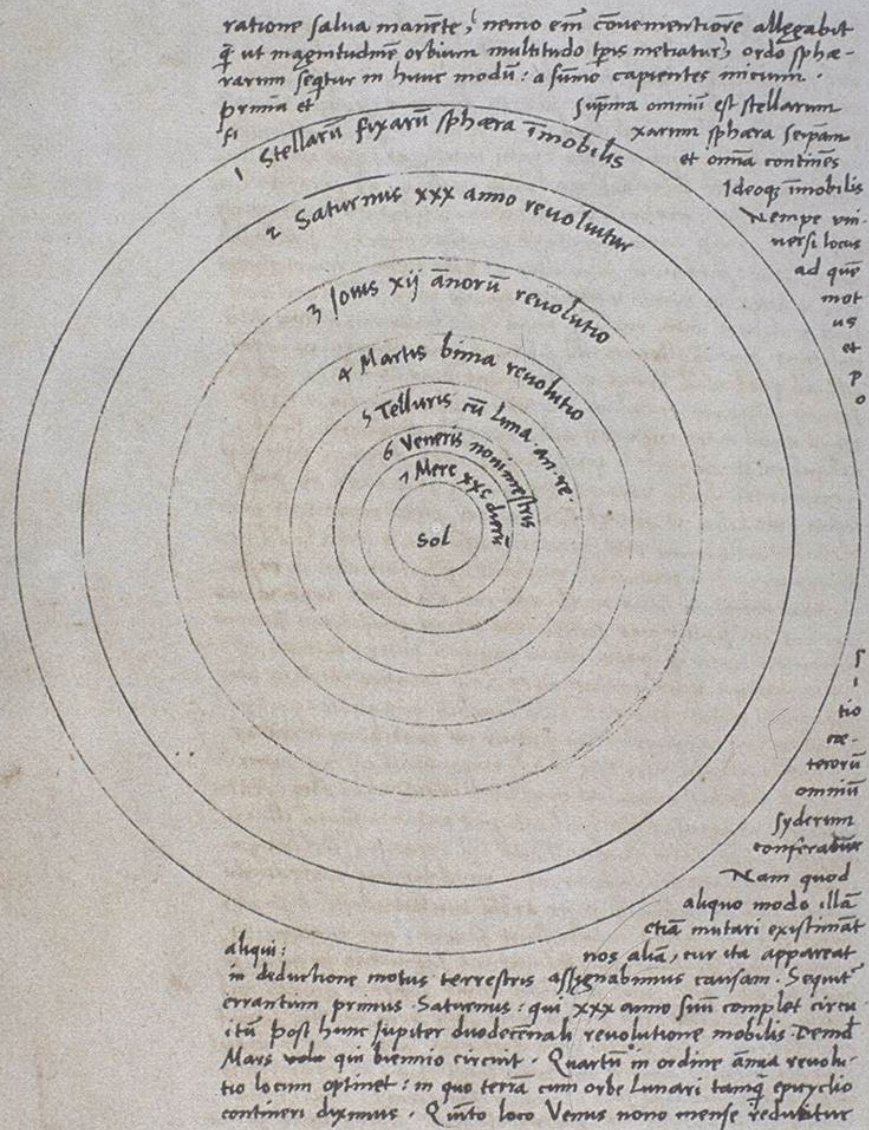 ratione salua manēte, nemo em̄ cōuenientiorē allegabit
q̄ ut magnitudinē orbium multitudo tp̄is metiatur, ordo sphæ-
rarum seqtur in hunc modū: a sūmo capientes initium.
prima et sup̄ma omniū est stellarum
fi xarum sphæra seipām
et om̄ia continēs
Ideoqꝫ īmobilis
Nempe vni-
uersi locus
ad quē
mot
us
et
p
o
1 Stellarū fixarū sphæra īmobilis
2 Saturnus xxx anno reuoluitur
3 Iouis xij ānorū reuolutio
4 Martis bima reuolutio
5 Telluris cū Luna. an. re.
6 Veneris nonimestris
7 Merc xxc dierū
Sol
s
i
tio
cæ-
terorū
omniū
syderum
conferatur
Nam quod
aliquo modo illā
etiā mutari existimāt
aliqui: nos aliā, cur ita appareat
in deductione motus terrestris assignabimus causam. Sequit
errantium primus Saturnus: qui xxx anno suū complet circu
itū post hunc Iupiter duodecēnali reuolutione mobilis. Deind
Mars qui biennio circuit. Quartū in ordine ānua reuolu-
tio locum optinet: in quo terrā cum orbe Lunari tamq̄ epicyclio
contineri diximus. Quīto loco Venus nono mense reducitur